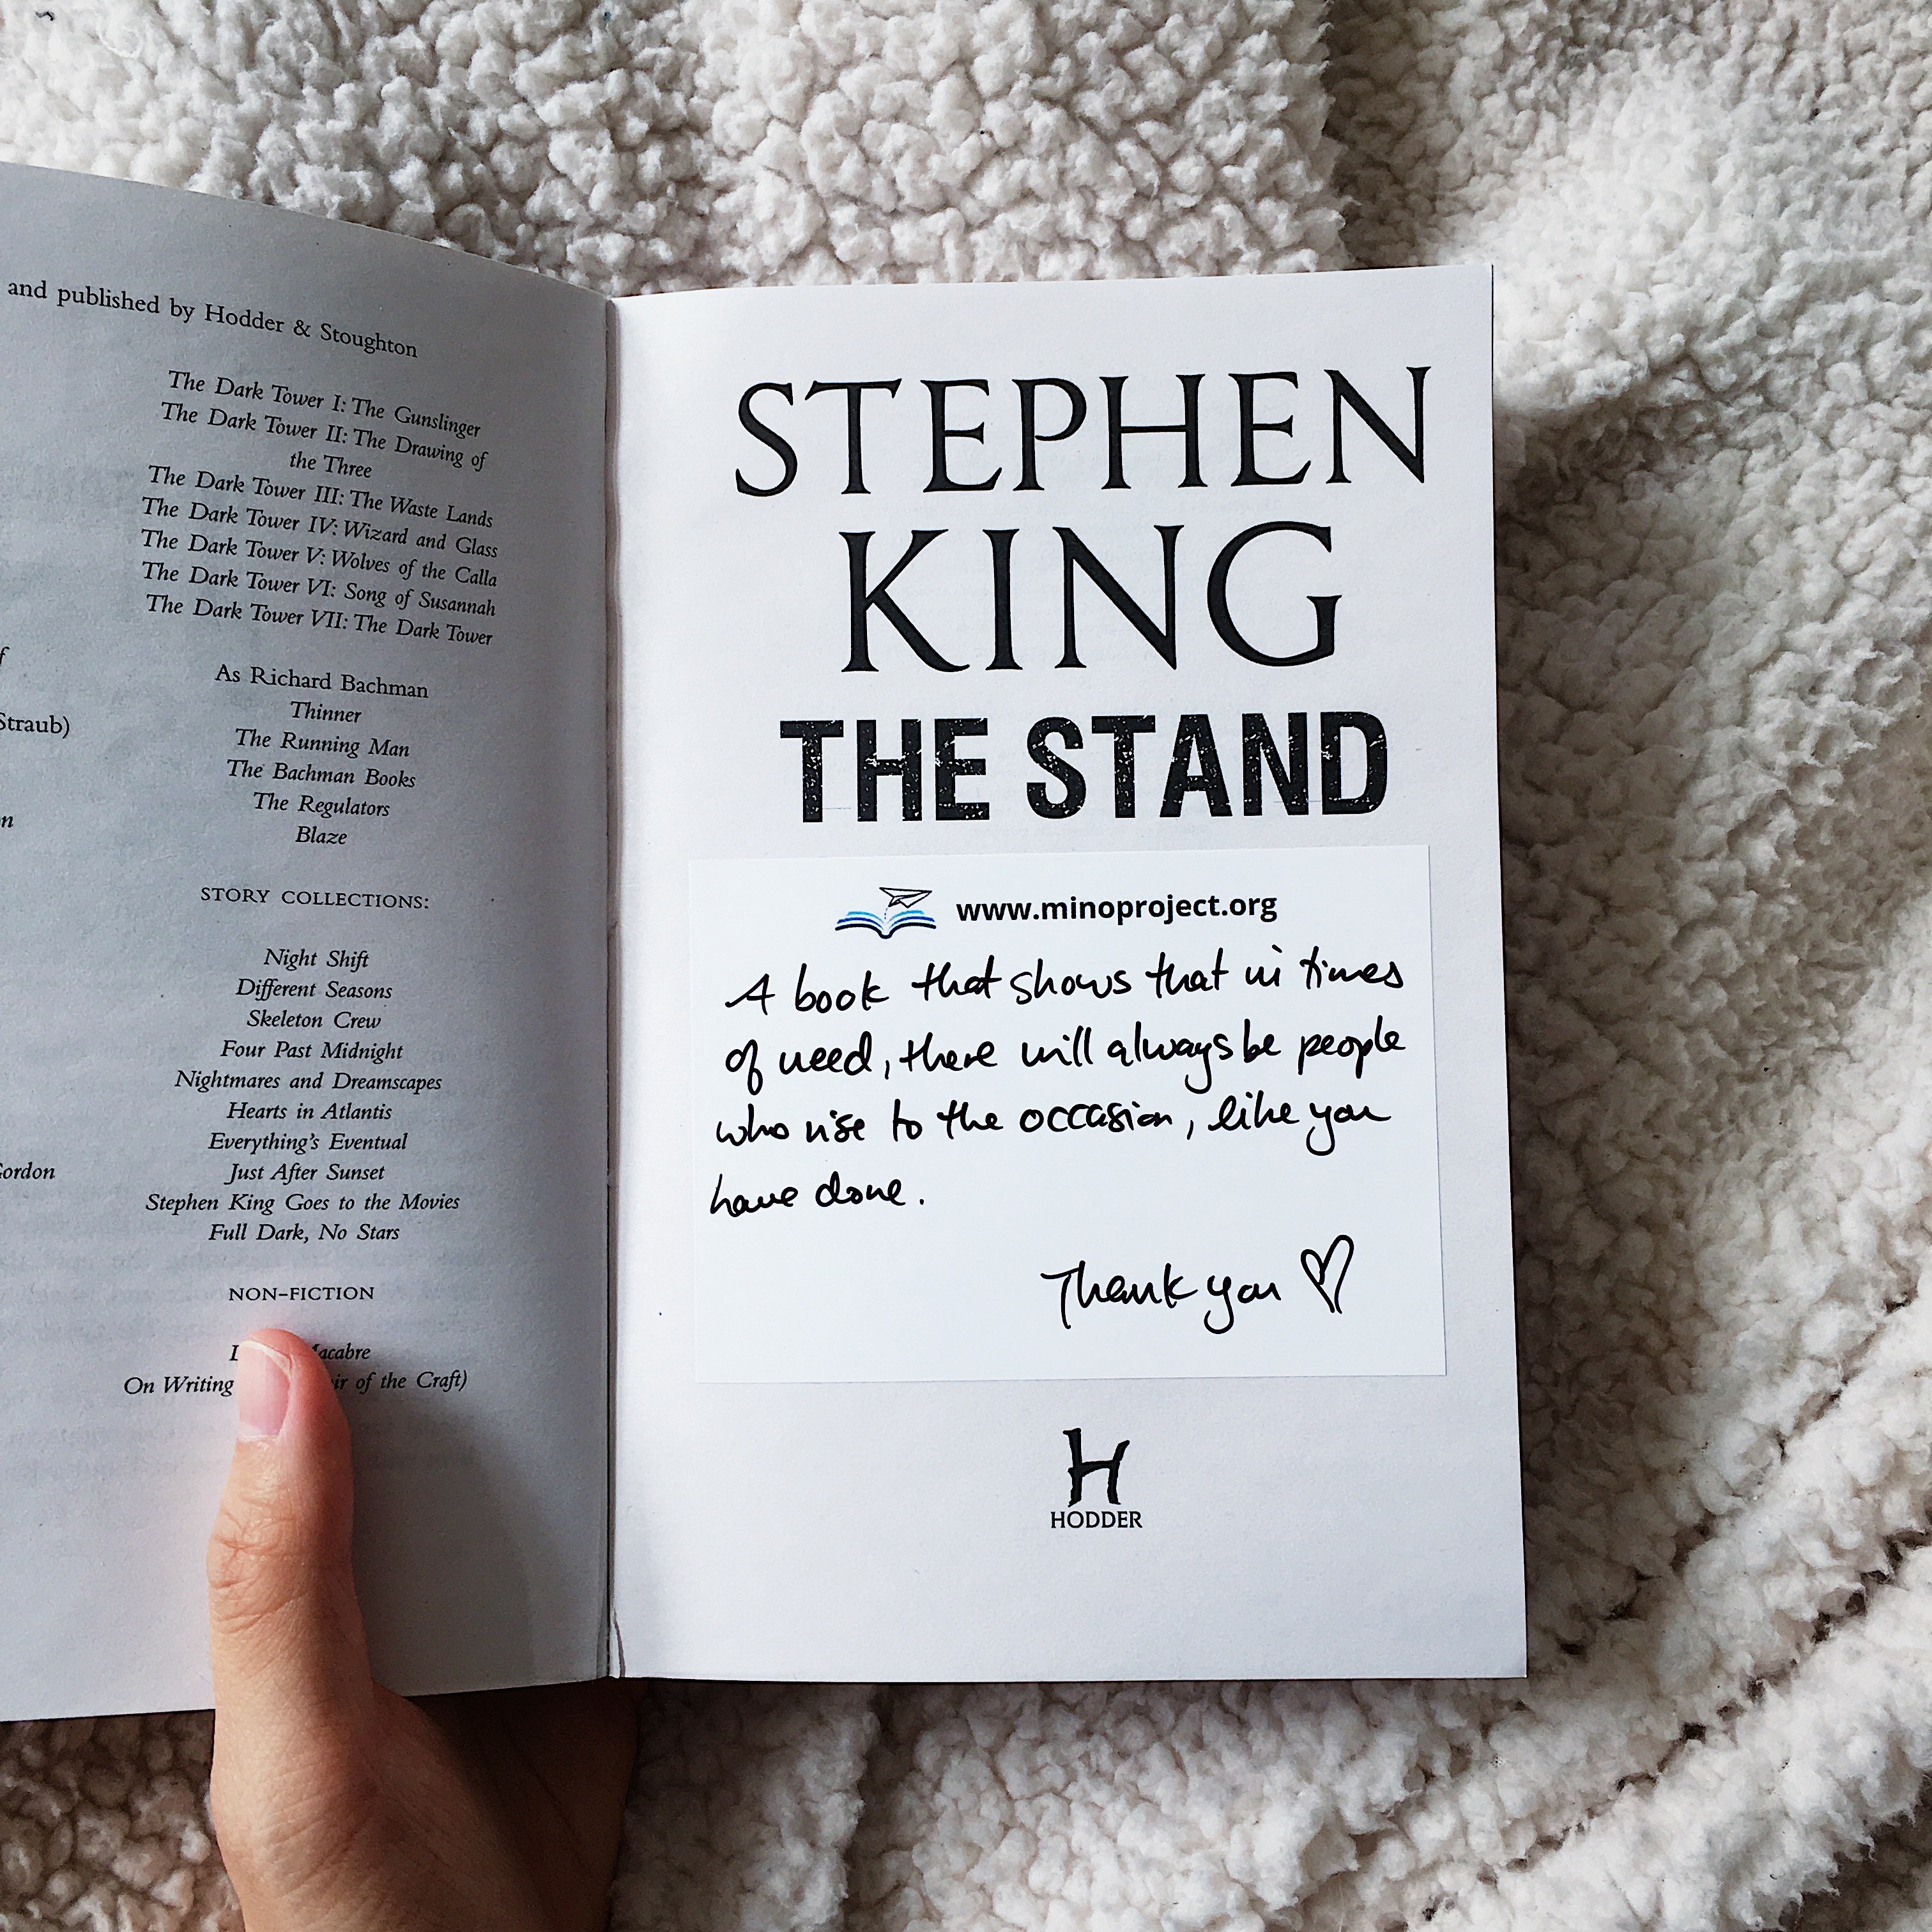 and published by Hodder & Stoughton
The Dark Tower I: The Gunslinger
The Dark Tower II: The Drawing of
the Three
The Dark Tower III: The Waste Lands
The Dark Tower IV: Wizard and Glass
The Dark Tower V: Wolves of the Calla
The Dark Tower VI: Song of Susannah
The Dark Tower VII: The Dark Tower
As Richard Bachman
Thinner
The Running Man
The Bachman Books
The Regulators
Blaze
STORY COLLECTIONS:
Night Shift
Different Seasons
Skeleton Crew
Four Past Midnight
Nightmares and Dreamscapes
Hearts in Atlantis
Everything's Eventual
Just After Sunset
Stephen King Goes to the Movies
Full Dark, No Stars
NON-FICTION
On Writing of the Craft)
Straub)
STEPHEN
KING
THE STAND
www.minoproject.org
A book that shows that in times
of need, there will always be people
who rise to the occasion, like you
have done.
Thank you ♡
H
HODDER